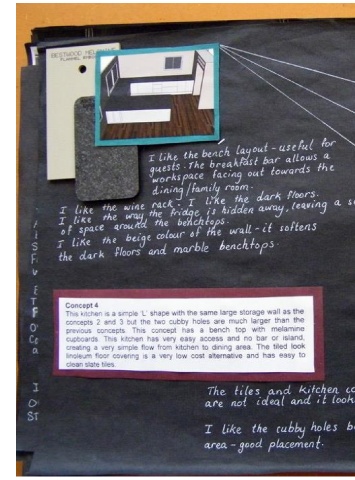 BESTWOOD MELAMINE
I like the bench layout - useful for
guests. The breakfast bar allows a
workspace facing out towards the
dining/family room.
I like the wine rack. I like the dark floors.
I like the way the fridge is hidden away, leaving a
of space around the benchtops.
I like the beige colour of the wall - it softens
the dark floors and marble benchtops.
Concept 4
This kitchen is a simple 'L' shape with the same large storage wall as the
concepts 2 and 3 but the two cubby holes are much larger than the
previous concepts. This concept has a bench top with melamine
cupboards. This kitchen has very easy access and no bar or island,
creating a very simple flow from kitchen to dining area. The tiled look
linoleum floor covering is a very low cost alternative and has easy to
clean slate tiles.
The tiles and kitchen
are not ideal and it look
I like the cubby holes
area - good placement.